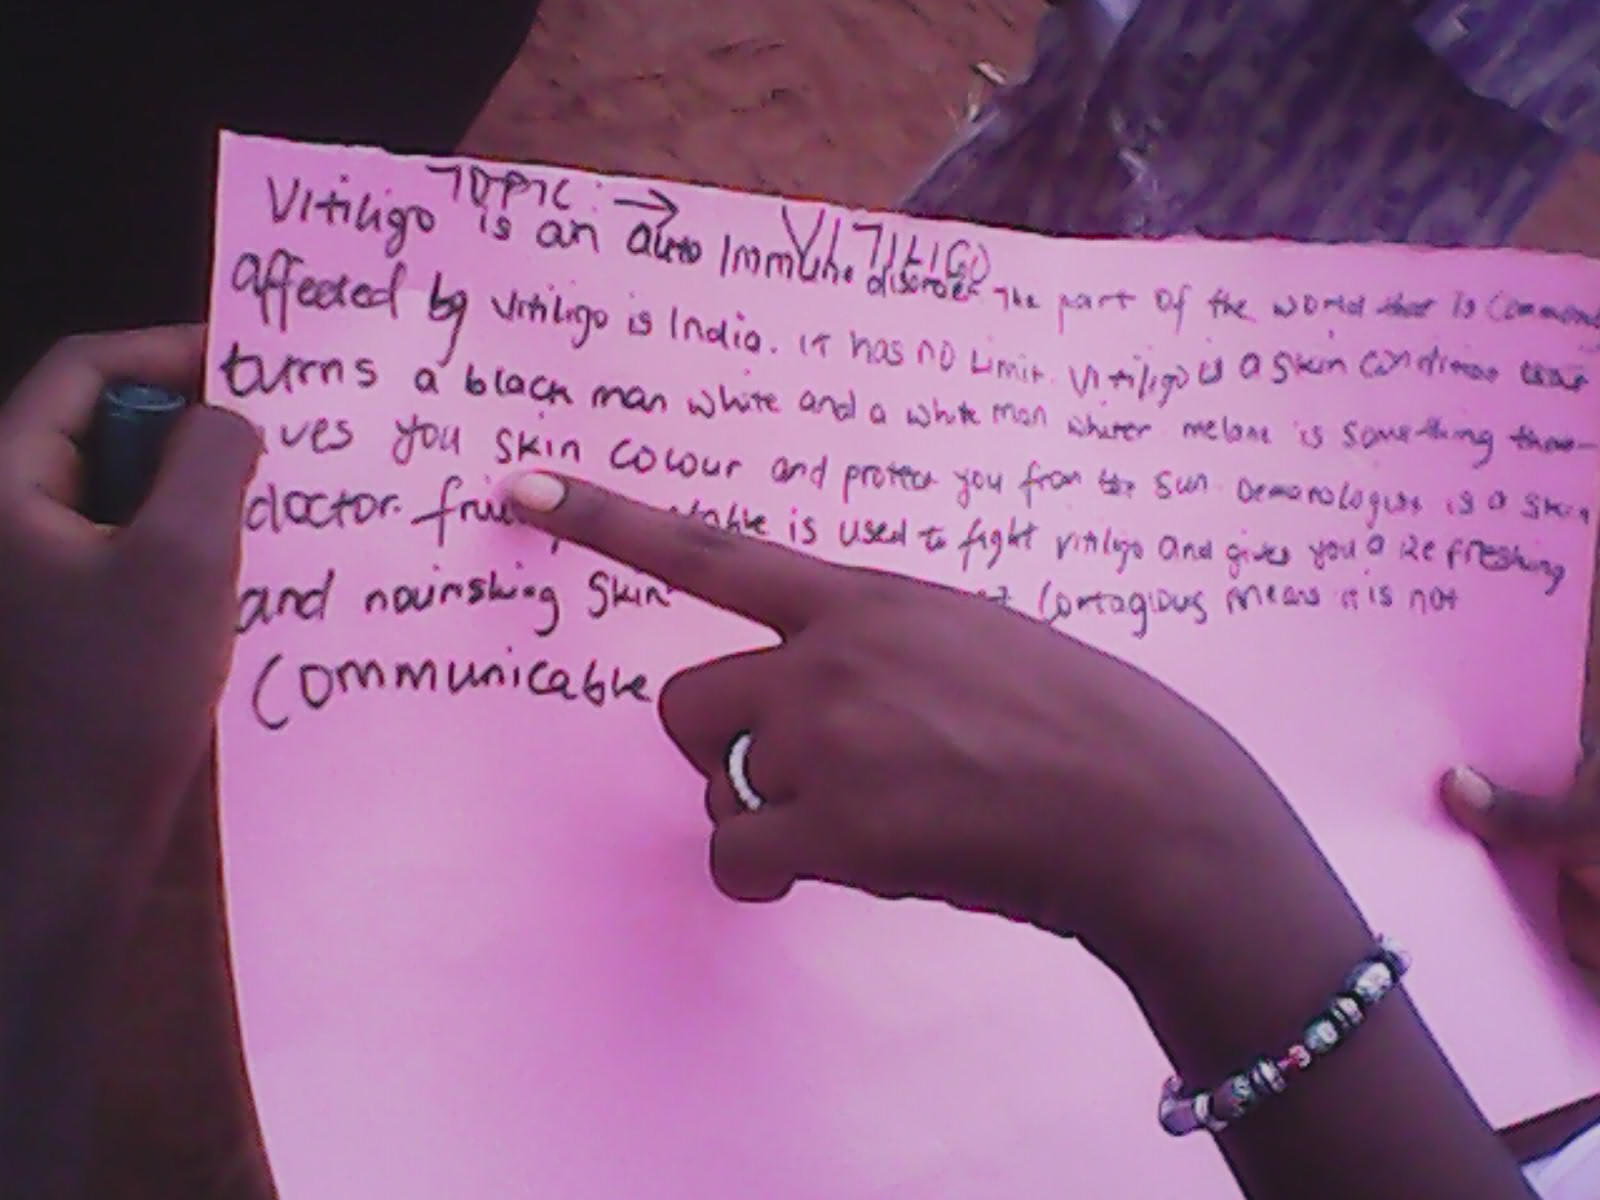 TOPIC: → VITILIGO
Vitiligo is an auto Immune disorder The part of the world that is
affected by vitiligo is India. it has no Limit. Vitiligo is a Skin
turns a black man white and a white man whiter melane is Something
you skin colour and protect you from the Sun. Demanologist is a Skin
doctor. is used to fight vitiligo and gives you a Refreshing
and nourishing Skin Contagious means it is not
Communicable